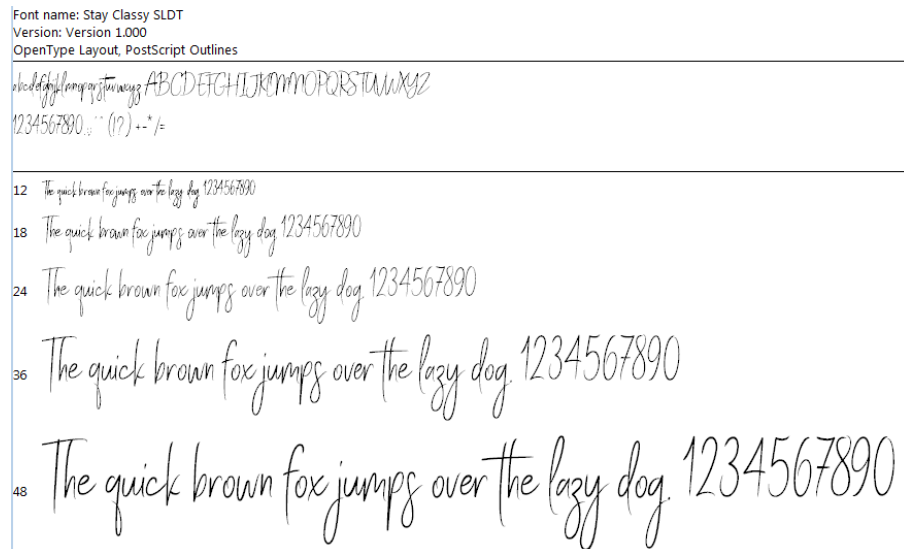 Font name: Stay Classy SLDT
Version: Version 1.000
OpenType Layout, PostScript Outlines
abcdefghijklmnopqrstuvwxyz ABCDEFGHIJKLMNOPQRSTUVWXYZ
1234567890.:,; ' " (!?) +-*/=
12 The quick brown fox jumps over the lazy dog. 1234567890
18 The quick brown fox jumps over the lazy dog. 1234567890
24 The quick brown fox jumps over the lazy dog. 1234567890
36 The quick brown fox jumps over the lazy dog. 1234567890
48 The quick brown fox jumps over the lazy dog. 1234567890